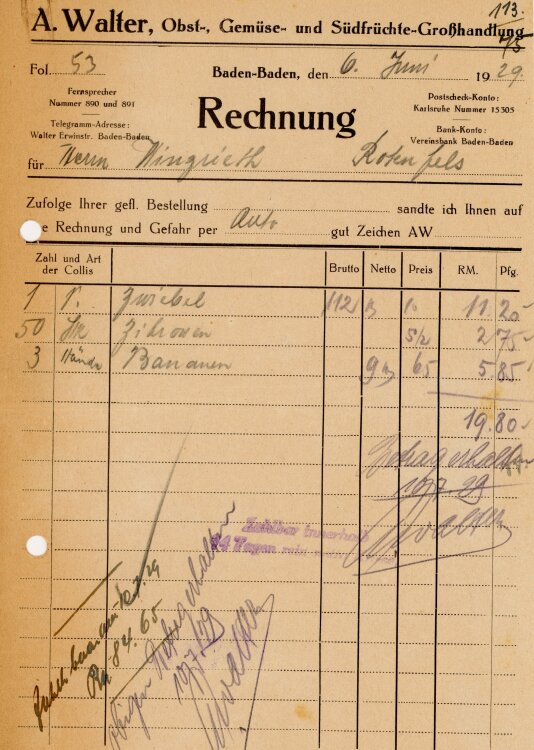 113
A. Walter, Obst-, Gemüse- und Südfrüchte-Großhandlung
Fol. 53 Baden-Baden, den 6. Juni 1929.
Fernsprecher
Nummer 890 und 891
Telegramm-Adresse:
Walter Erwinstr. Baden-Baden
Rechnung
Postscheck-Konto:
Karlsruhe Nummer 15305
Bank-Konto:
Vereinsbank Baden-Baden
für Herrn Wingrieth Rotenfels
Zufolge Ihrer gefl. Bestellung sandte ich Ihnen auf
Rechnung und Gefahr per Auto gut Zeichen AW
Zahl und Art der Collis Brutto Netto Preis RM. Pfg.
1 Zwiebel 112 11 20
50 Zitronen 5 1/2 2 75
3 Bananen 9 65 5 85
19.80
Betrag erhalten
10/7.29
Walter
Zahlbar innerhalb
14 Tagen
Betrag erhalten
10/7/29
Walter
84.65